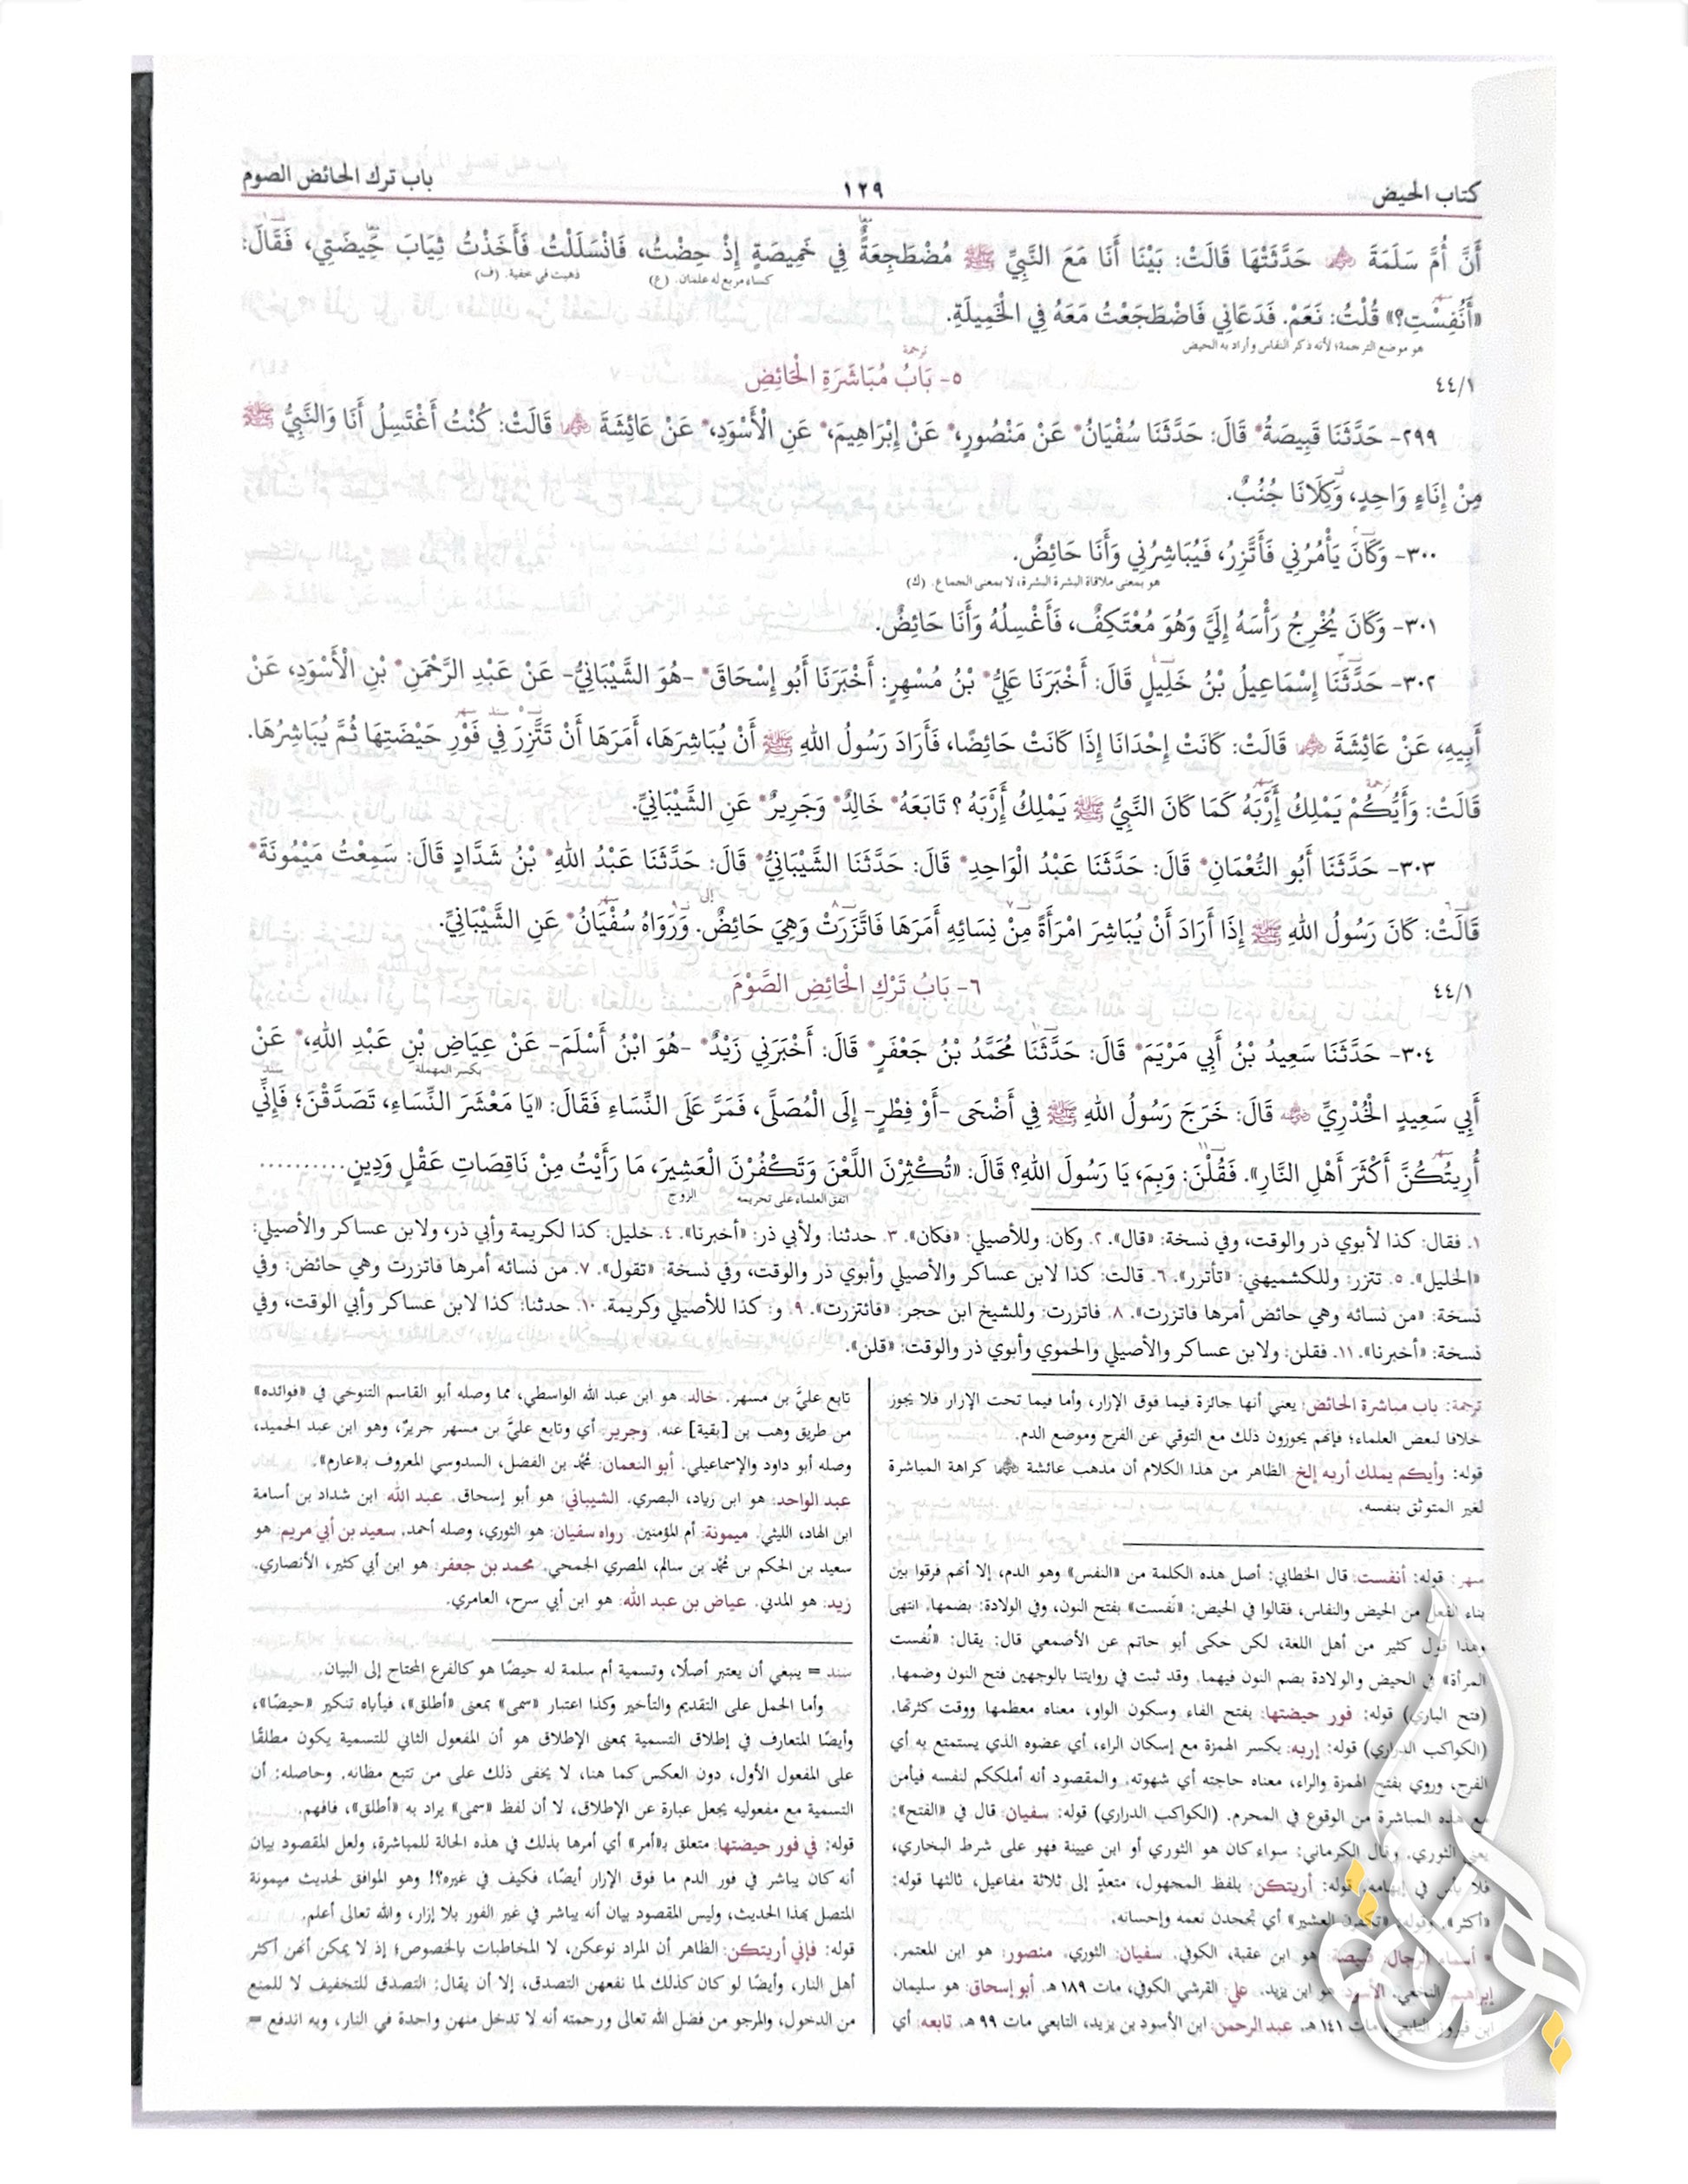 كتاب الحيض
١٢٩
باب ترك الحائض الصوم
أَنَّ أُمَّ سَلَمَةَ ﵂ حَدَّثَتْهَا قَالَتْ: بَيْنَا أَنَا مَعَ النَّبِيِّ ﷺ مُضْطَجِعَةٌ فِي خَمِيصَةٍ إِذْ حِضْتُ، فَانْسَلَلْتُ فَأَخَذْتُ ثِيَابَ حِيضَتِي، فَقَالَ:
كساء مربع له علمان. (ع) ذهبت في خفية. (ف)
«أَنُفِسْتِ؟» قُلْتُ: نَعَمْ. فَدَعَانِي فَاضْطَجَعْتُ مَعَهُ فِي الْخَمِيلَةِ.
هو موضع الترجمة؛ لأنه ذكر النفاس وأراد به الحيض
٤٤/١ ٥- بَابُ مُبَاشَرَةِ الْحَائِضِ
٢٩٩- حَدَّثَنَا قَبِيصَةُ* قَالَ: حَدَّثَنَا سُفْيَانُ* عَنْ مَنْصُورٍ،* عَنْ إِبْرَاهِيمَ،* عَنِ الْأَسْوَدِ،* عَنْ عَائِشَةَ ﵂ قَالَتْ: كُنْتُ أَغْتَسِلُ أَنَا وَالنَّبِيُّ ﷺ
مِنْ إِنَاءٍ وَاحِدٍ، وَكِلَانَا جُنُبٌ.
٣٠٠- وَكَانَ يَأْمُرُنِي فَأَتَّزِرُ، فَيُبَاشِرُنِي وَأَنَا حَائِضٌ.
هو بمعنى ملاقاة البشرة البشرة، لا بمعنى الجماع. (ك)
٣٠١- وَكَانَ يُخْرِجُ رَأْسَهُ إِلَيَّ وَهُوَ مُعْتَكِفٌ، فَأَغْسِلُهُ وَأَنَا حَائِضٌ.
٣٠٢- حَدَّثَنَا إِسْمَاعِيلُ بْنُ خَلِيلٍ قَالَ: أَخْبَرَنَا عَلِيُّ* بْنُ مُسْهِرٍ: أَخْبَرَنَا أَبُو إِسْحَاقَ* -هُوَ الشَّيْبَانِيُّ- عَنْ عَبْدِ الرَّحْمَنِ* بْنِ الْأَسْوَدِ، عَنْ
أَبِيهِ، عَنْ عَائِشَةَ ﵂ قَالَتْ: كَانَتْ إِحْدَانَا إِذَا كَانَتْ حَائِضًا، فَأَرَادَ رَسُولُ اللهِ ﷺ أَنْ يُبَاشِرَهَا، أَمَرَهَا أَنْ تَتَّزِرَ فِي فَوْرِ حَيْضَتِهَا ثُمَّ يُبَاشِرُهَا.
قَالَتْ: وَأَيُّكُمْ يَمْلِكُ إِرْبَهُ كَمَا كَانَ النَّبِيُّ ﷺ يَمْلِكُ إِرْبَهُ؟ تَابَعَهُ* خَالِدٌ* وَجَرِيرٌ* عَنِ الشَّيْبَانِيِّ.
٣٠٣- حَدَّثَنَا أَبُو النُّعْمَانِ* قَالَ: حَدَّثَنَا عَبْدُ الْوَاحِدِ* قَالَ: حَدَّثَنَا الشَّيْبَانِيُّ* قَالَ: حَدَّثَنَا عَبْدُ اللهِ* بْنُ شَدَّادٍ قَالَ: سَمِعْتُ مَيْمُونَةَ*
قَالَتْ: كَانَ رَسُولُ اللهِ ﷺ إِذَا أَرَادَ أَنْ يُبَاشِرَ امْرَأَةً مِنْ نِسَائِهِ أَمَرَهَا فَاتَّزَرَتْ وَهِيَ حَائِضٌ. وَرَوَاهُ سُفْيَانُ* عَنِ الشَّيْبَانِيِّ.
٤٤/١ ٦- بَابُ تَرْكِ الْحَائِضِ الصَّوْمَ
٣٠٤- حَدَّثَنَا سَعِيدُ بْنُ أَبِي مَرْيَمَ* قَالَ: حَدَّثَنَا مُحَمَّدُ بْنُ جَعْفَرٍ* قَالَ: أَخْبَرَنِي زَيْدٌ* -هُوَ ابْنُ أَسْلَمَ- عَنْ عِيَاضِ بْنِ عَبْدِ اللهِ،* عَنْ
بكسر المهملة
أَبِي سَعِيدٍ الْخُدْرِيِّ ﵁ قَالَ: خَرَجَ رَسُولُ اللهِ ﷺ فِي أَضْحَى -أَوْ فِطْرٍ- إِلَى الْمُصَلَّى، فَمَرَّ عَلَى النِّسَاءِ فَقَالَ: «يَا مَعْشَرَ النِّسَاءِ، تَصَدَّقْنَ؛ فَإِنِّي
أُرِيتُكُنَّ أَكْثَرَ أَهْلِ النَّارِ». فَقُلْنَ: وَبِمَ، يَا رَسُولَ اللهِ؟ قَالَ: «تُكْثِرْنَ اللَّعْنَ وَتَكْفُرْنَ الْعَشِيرَ، مَا رَأَيْتُ مِنْ نَاقِصَاتِ عَقْلٍ وَدِينٍ..........
اتفق العلماء على تحريمه الزوج
١. فقال: كذا لأبوي ذر والوقت، وفي نسخة: «قال». ٢. وكان: وللأصيلي: «فكان». ٣. حدثنا: ولأبي ذر: «أخبرنا». ٤. خليل: كذا لكريمة وأبي ذر، ولابن عساكر والأصيلي:
«الخليل». ٥. تتزر: وللكشميهني: «تأتزر». ٦. قالت: كذا لابن عساكر والأصيلي وأبوي ذر والوقت، وفي نسخة: «تقول». ٧. من نسائه أمرها فاتزرت وهي حائض: وفي
نسخة: «من نسائه وهي حائض أمرها فاتزرت». ٨. فاتزرت: وللشيخ ابن حجر: «فائتزرت». ٩. و: كذا للأصيلي وكريمة. ١٠. حدثنا: كذا لابن عساكر وأبي الوقت، وفي
نسخة: «أخبرنا». ١١. فقلن: ولابن عساكر والأصيلي والحموي وأبوي ذر والوقت: «قلن».
ترجمة: باب مباشرة الحائض: يعني أنها جائزة فيما فوق الإزار، وأما فيما تحت الإزار فلا يجوز
خلافا لبعض العلماء؛ فإنهم يجوزون ذلك مع التوقي عن الفرج وموضع الدم.
قوله: وأيكم يملك أربه إلخ: الظاهر من هذا الكلام أن مذهب عائشة ﵂ كراهة المباشرة
لغير المتوثق بنفسه.
سهر: قوله: أنفست: قال الخطابي: أصل هذه الكلمة من «النفس» وهو الدم، إلا أنهم فرقوا بين
بناء الفعل من الحيض والنفاس، فقالوا في الحيض: «نَفست» بفتح النون، وفي الولادة: بضمها. انتهى
وهذا قول كثير من أهل اللغة، لكن حكى أبو حاتم عن الأصمعي قال: يقال: «نُفست
المرأة» في الحيض والولادة بضم النون فيهما. وقد ثبت في روايتنا بالوجهين فتح النون وضمها.
(فتح الباري) قوله: فور حيضتها: بفتح الفاء وسكون الواو، معناه معظمها ووقت كثرتها.
(الكواكب الدراري) قوله: إربه: بكسر الهمزة مع إسكان الراء، أي عضوه الذي يستمتع به أي
الفرج، وروي بفتح الهمزة والراء، معناه حاجته أي شهوته. والمقصود أنه أملككم لنفسه فيأمن
مع هذه المباشرة من الوقوع في المحرم. (الكواكب الدراري) قوله: سفيان: قال في «الفتح»:
يعني الثوري. وقال الكرماني: سواء كان هو الثوري أو ابن عيينة فهو على شرط البخاري،
فلا بأس في إبهامه. قوله: أريتكن: بلفظ المجهول، متعدٍّ إلى ثلاثة مفاعيل، ثالثها قوله:
«أكثر». وقوله: «تكفرن العشير» أي تجحدن نعمه وإحسانه.
* أسماء الرجال: قبيصة: هو ابن عقبة، الكوفي. سفيان: الثوري. منصور: هو ابن المعتمر.
إبراهيم: النخعي. الأسود: هو ابن يزيد. علي: القرشي الكوفي، مات ١٨٩ هـ. أبو إسحاق: هو سليمان
ابن فيروز التابعي، مات ١٤١ هـ. عبد الرحمن: ابن الأسود بن يزيد، التابعي مات ٩٩ هـ. تابعه: أي
تابع عليَّ بن مسهر. خالد: هو ابن عبد الله الواسطي، مما وصله أبو القاسم التنوخي في «فوائده»
من طريق وهب بن [بقية] عنه. وجرير: أي وتابع عليَّ بن مسهر جريرٌ، وهو ابن عبد الحميد،
وصله أبو داود والإسماعيلي. أبو النعمان: محمد بن الفضل، السدوسي المعروف بـ«عارم».
عبد الواحد: هو ابن زياد، البصري. الشيباني: هو أبو إسحاق. عبد الله: ابن شداد بن أسامة
ابن الهاد، الليثي. ميمونة: أم المؤمنين. رواه سفيان: هو الثوري، وصله أحمد. سعيد بن أبي مريم: هو
سعيد بن الحكم بن محمد بن سالم، المصري الجمحي. محمد بن جعفر: هو ابن أبي كثير، الأنصاري.
زيد: هو المدني. عياض بن عبد الله: هو ابن أبي سرح، العامري.
سند = ينبغي أن يعتبر أصلًا، وتسمية أم سلمة له حيضًا هو كالفرع المحتاج إلى البيان.
وأما الحمل على التقديم والتأخير وكذا اعتبار «سمى» بمعنى «أطلق»، فيأباه تنكير «حيضًا»،
وأيضًا المتعارف في إطلاق التسمية بمعنى الإطلاق هو أن المفعول الثاني للتسمية يكون مطلقًا
على المفعول الأول، دون العكس كما هنا، لا يخفى ذلك على من تتبع مظانه. وحاصله: أن
التسمية مع مفعوليه يجعل عبارة عن الإطلاق، لا أن لفظ «سمى» يراد به «أطلق»، فافهم.
قوله: في فور حيضتها: متعلق بـ«أمر» أي أمرها بذلك في هذه الحالة للمباشرة، ولعل المقصود بيان
أنه كان يباشر في فور الدم ما فوق الإزار أيضًا، فكيف في غيره؟! وهو الموافق لحديث ميمونة
المتصل بهذا الحديث، وليس المقصود بيان أنه يباشر في غير الفور بلا إزار، والله تعالى أعلم.
قوله: فإني أريتكن: الظاهر أن المراد نوعكن، لا المخاطبات بالخصوص؛ إذ لا يمكن أنهن أكثر
أهل النار، وأيضًا لو كان كذلك لما نفعهن التصدق، إلا أن يقال: التصدق للتخفيف لا للمنع
من الدخول، والمرجو من فضل الله تعالى ورحمته أنه لا تدخل منهن واحدة في النار، وبه اندفع =